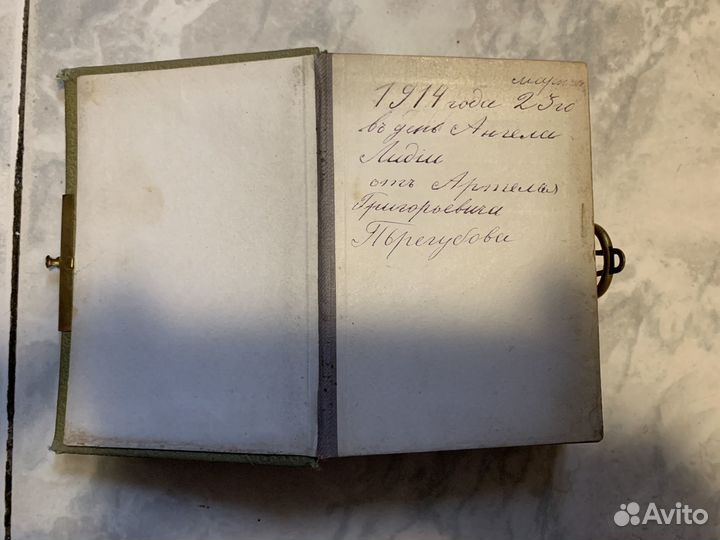 марта
1914 года 23го
въ день Ангела
Лидіи
отъ Артемья
Григорьевича
Пѣрегубова
Avito